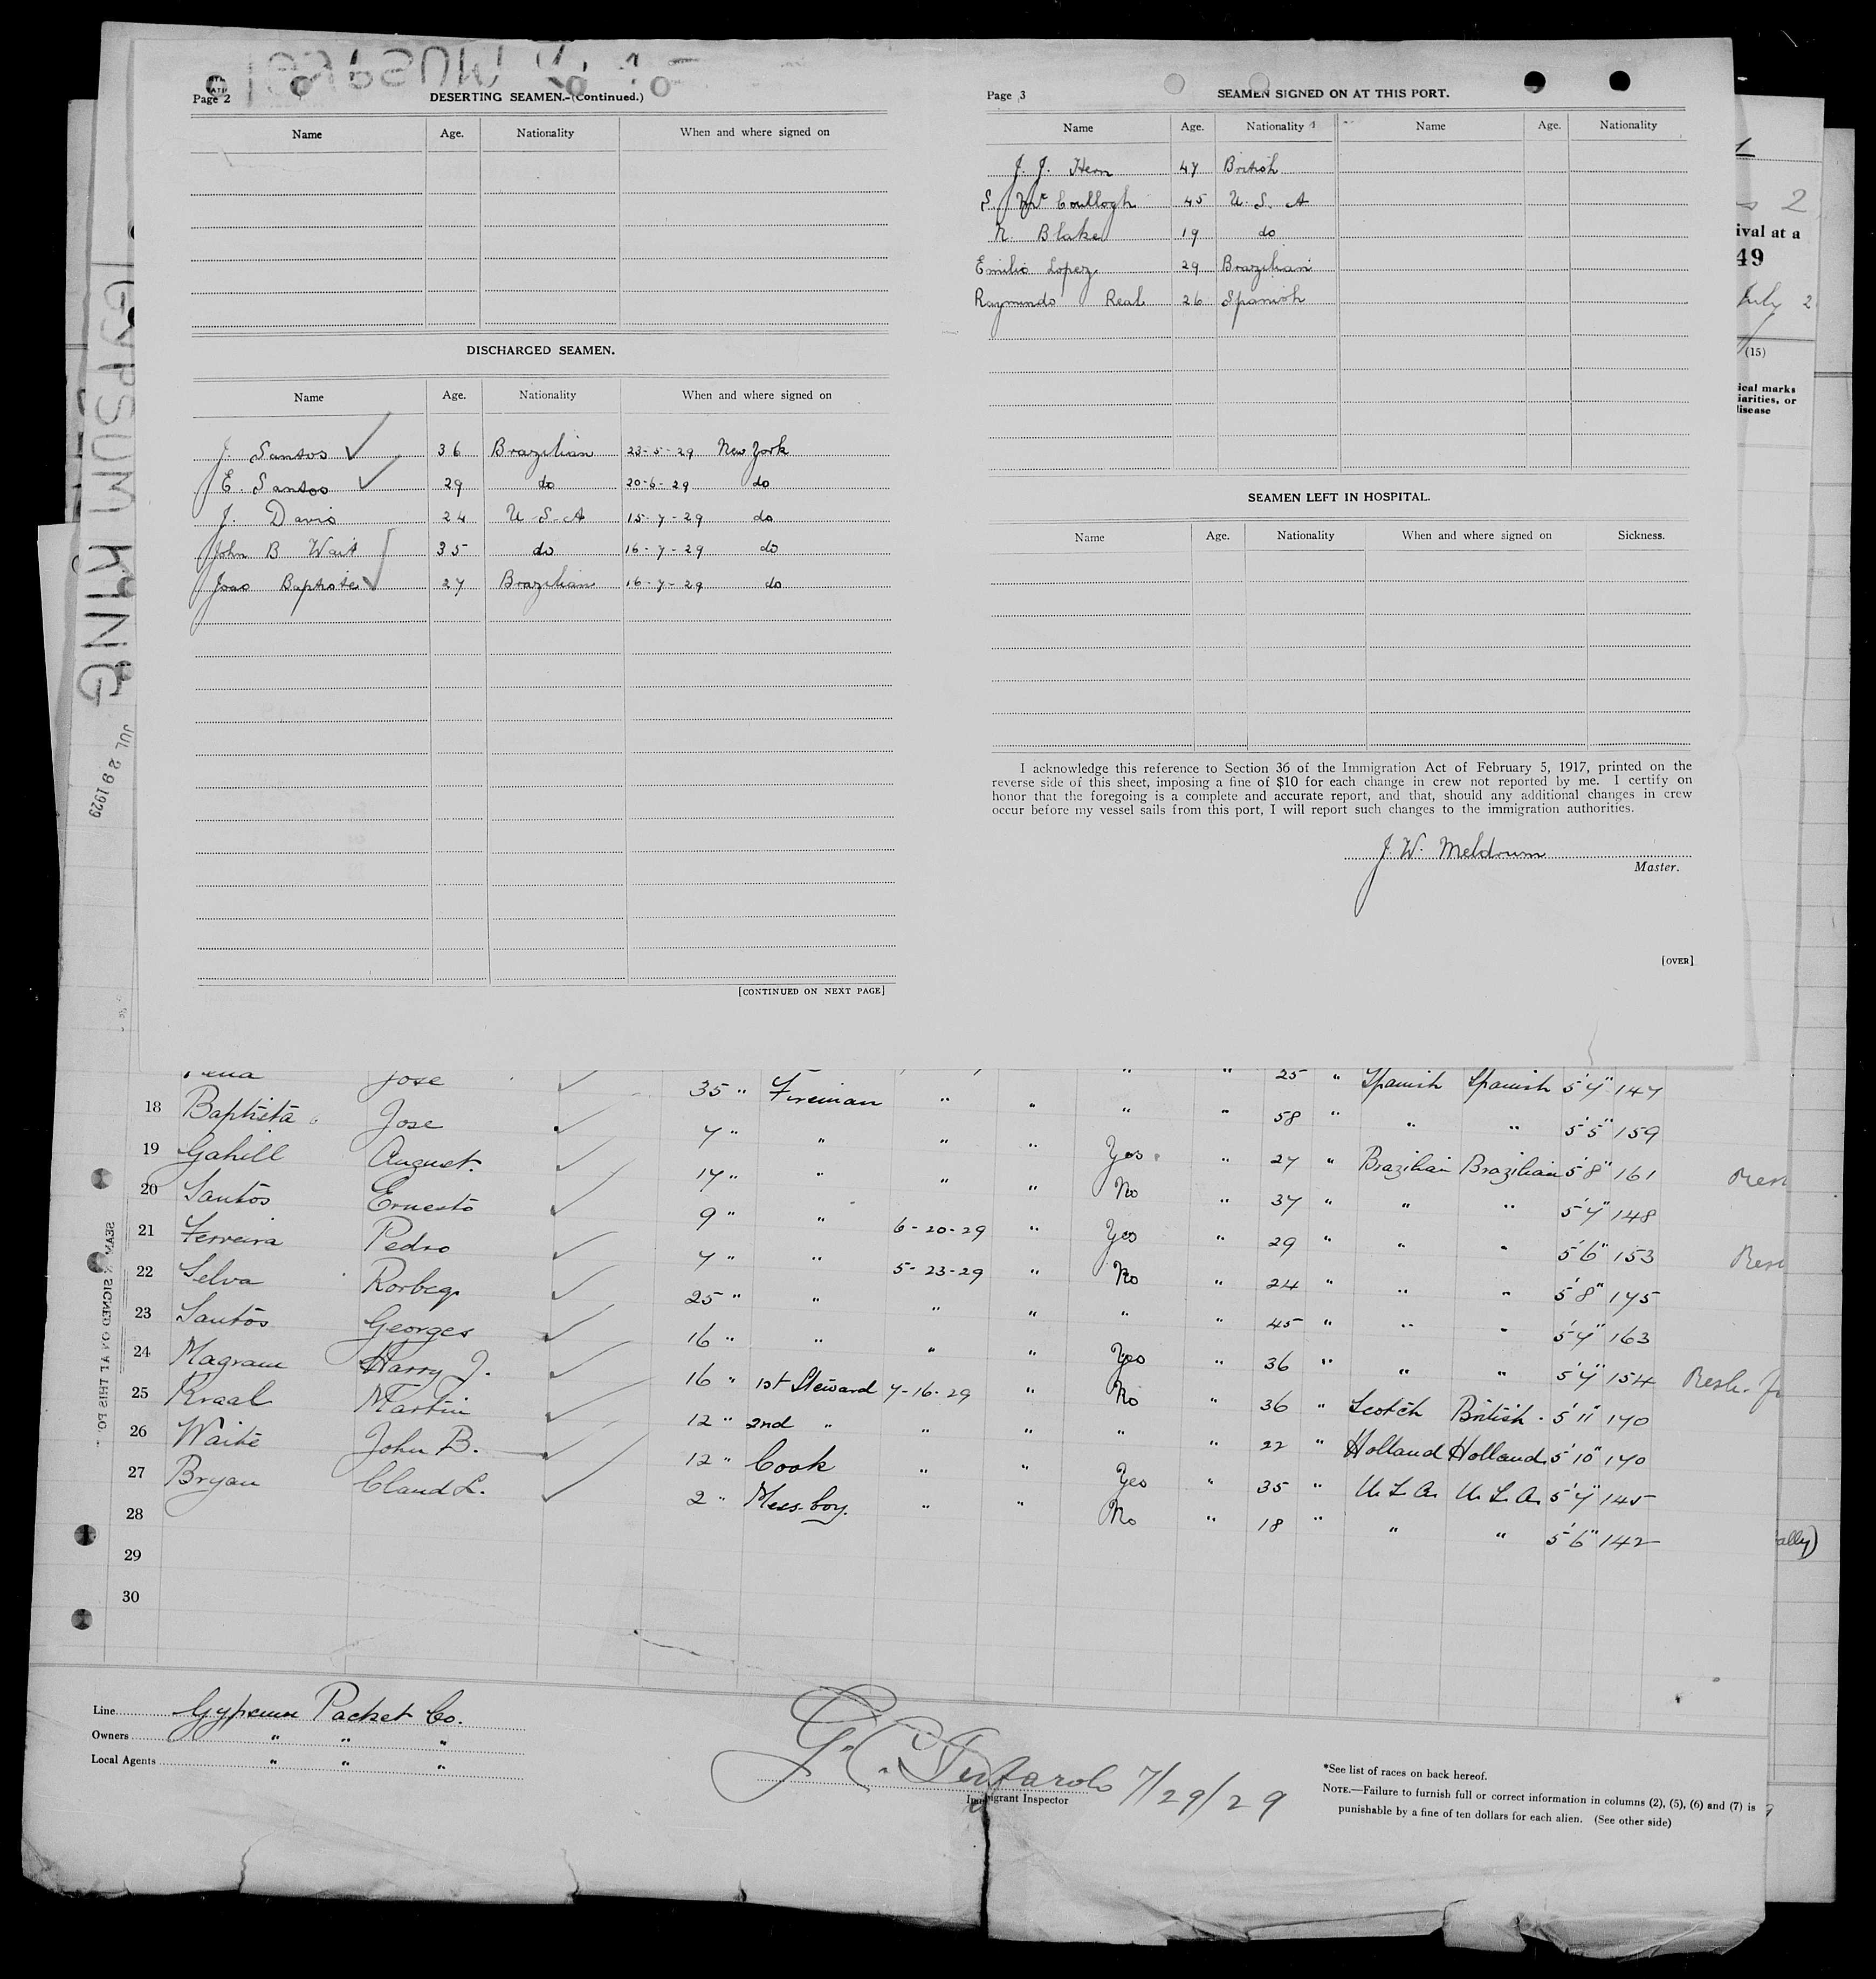 Page 2
DESERTING SEAMEN.-(Continued.)
Name Age. Nationality When and where signed on
DISCHARGED SEAMEN.
Name Age. Nationality When and where signed on
J. Santos 36 Brazilian 23-5-29 New York
E. Santos 29 do 20-6-29 do
J. Davis 24 U S. A 15-7-29 do
John B Wait 35 do 16-7-29 do
Joao Baptiste 27 Brazilian 16-7-29 do
[CONTINUED ON NEXT PAGE]
Page 3
SEAMEN SIGNED ON AT THIS PORT.
Name Age. Nationality Name Age. Nationality
J. J. Hern 47 British
S. McCoullogh 45 U. S. A
N. Blake 19 do
Emilio Lopez 29 Brazilian
Raymundo Real 26 Spanish
SEAMEN LEFT IN HOSPITAL.
Name Age. Nationality When and where signed on Sickness.
I acknowledge this reference to Section 36 of the Immigration Act of February 5, 1917, printed on the
reverse side of this sheet, imposing a fine of $10 for each change in crew not reported by me. I certify on
honor that the foregoing is a complete and accurate report, and that, should any additional changes in crew
occur before my vessel sails from this port, I will report such changes to the immigration authorities.
J. W. Meldrum
Master.
[OVER]
GYPSUM KING
JUL 29 1929
ival at a
49
July 2
(15)
ical marks
iarities, or
disease
Jose 35 " Fireman " " " " 25 " Spanish Spanish 5'7" 147
18 Baptista Jose 7 " " " " " " 58 " " " 5'5" 159
19 Gahill August. 17 " " " " Yes " 27 " Brazilian Brazilian 5'8" 161
20 Santos Ernesto 9 " " 6-20-29 " No " 37 " " " 5'7" 148
21 Ferreira Pedro 7 " " 5-23-29 " Yes " 29 " " " 5'6" 153
22 Selva 25 " " " " No " 24 " " " 5'8" 175
23 Santos Georges 16 " " " " " " 45 " " " 5'7" 163
24 Magram Harry J. 16 " 1st Steward 7-16-29 " Yes " 36 " " " 5'7" 154
25 Kraal Martin 12 " 2nd " " " No " 36 " Scotch British 5'11" 170
26 Waite John B. 12 " Cook " " " " 22 " Holland Holland 5'10" 170
27 Bryan Claud L. 2 " Mess-boy. " " Yes " 35 " U. S. A. U. S. A. 5'7" 145
28 No " 18 " " " 5'6" 142
29
30
ally)
Line Gypsum Packet Co.
Owners " " "
Local Agents " " "
7/29/29
Immigrant Inspector
*See list of races on back hereof.
NOTE.—Failure to furnish full or correct information in columns (2), (5), (6) and (7) is
punishable by a fine of ten dollars for each alien. (See other side)